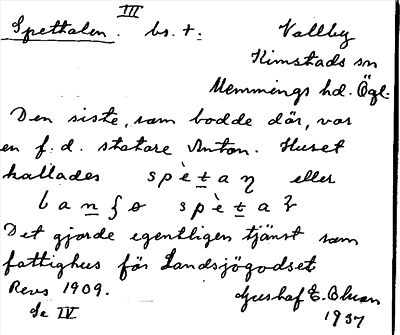 III
Spettalen. bs. t.
Vallby
Kimstads sn
Memmings hd. Ögl.
Den siste, som bodde där, var
en f. d. statare Anton. Huset
kallades spètaŋ eller
spètaɀ
Det gjorde egentligen tjänst som
fattighus för Landsjögodset
Revs 1909.
Se IV
Gustaf E. Ohman
1937